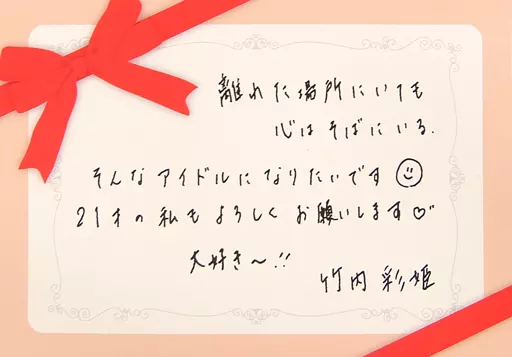 離れた場所にいても
心はそばにいる.
そんなアイドルになりたいです☺
21才の私もよろしくお願いします♡
大好き〜!!
竹内 彩姫